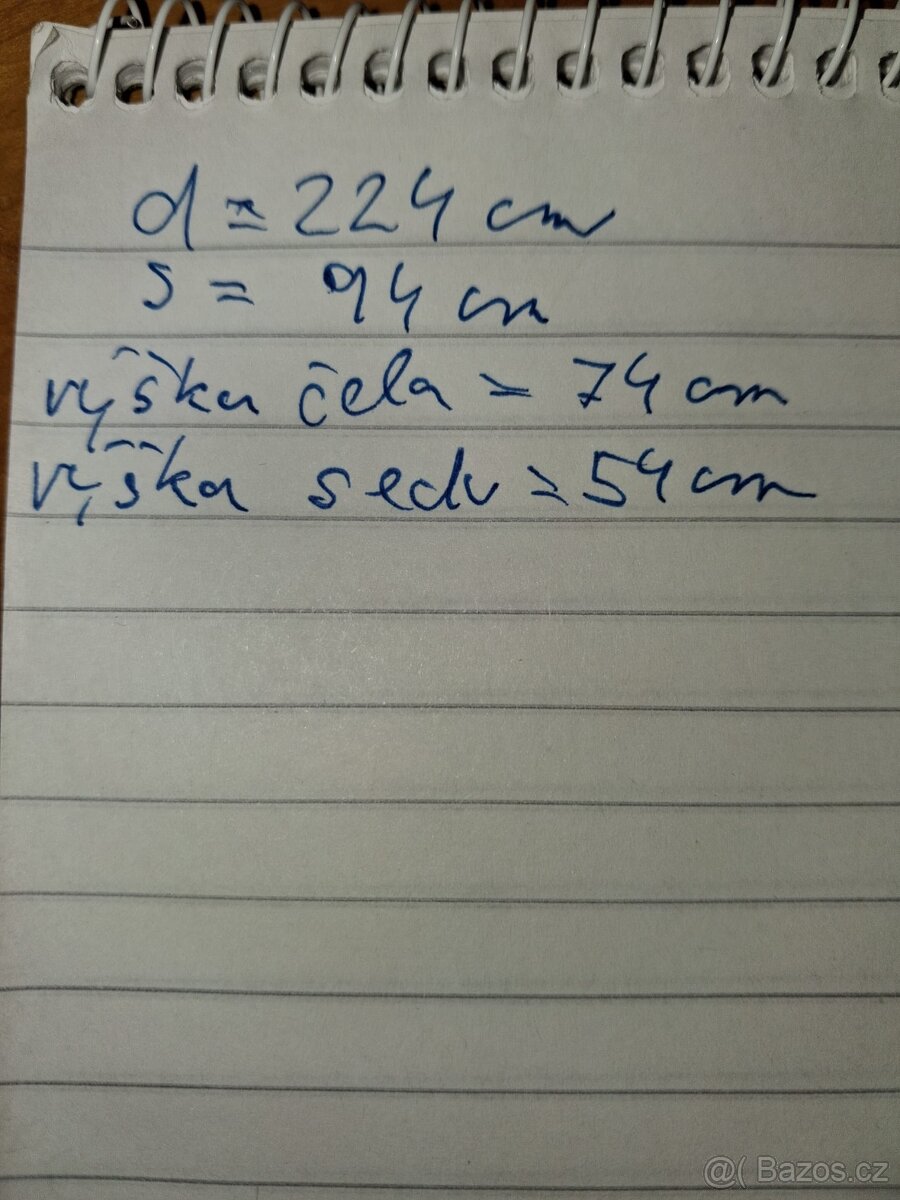 d = 224 cm
s = 94 cm
výška čela = 74 cm
výška sedu = 54 cm
@( Bazos.cz